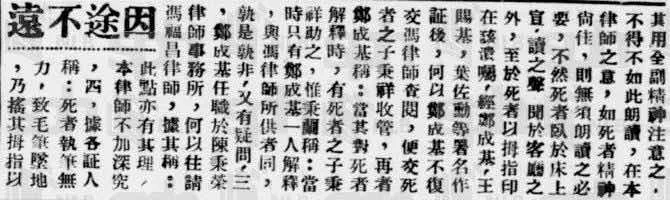 其用全副精神注意之，
不得不如此朗讀，在本
律師之意，如死者精神
尚佳，則無須朗讀之必
要，不然死者臥於床上
宣讀之聲，聞於客廳之
外，至於死者以拇指印
在該遺囑，經鄭成基，王
賜基，葉佐勳等署名作
証後，何以鄭成基不復
交馮律師查閱，便交死
者之子秉祥收管，再者
鄭成基稱：當其對死者
解釋時，有死者之子秉
祥助之，惟秉蘭稱：當
時只有鄭成基一人解釋
，與馮律師所供者同，
孰是孰非，又有疑問，三
，鄭成基任職於陳秉榮
律師事務所，何以往請
馮福昌律師，據其稱：
因途不遠
此點亦有其理，
本律師不加深究
，四，據各証人
稱：死者執筆無
力，致毛筆墜地
，乃搖其拇指以